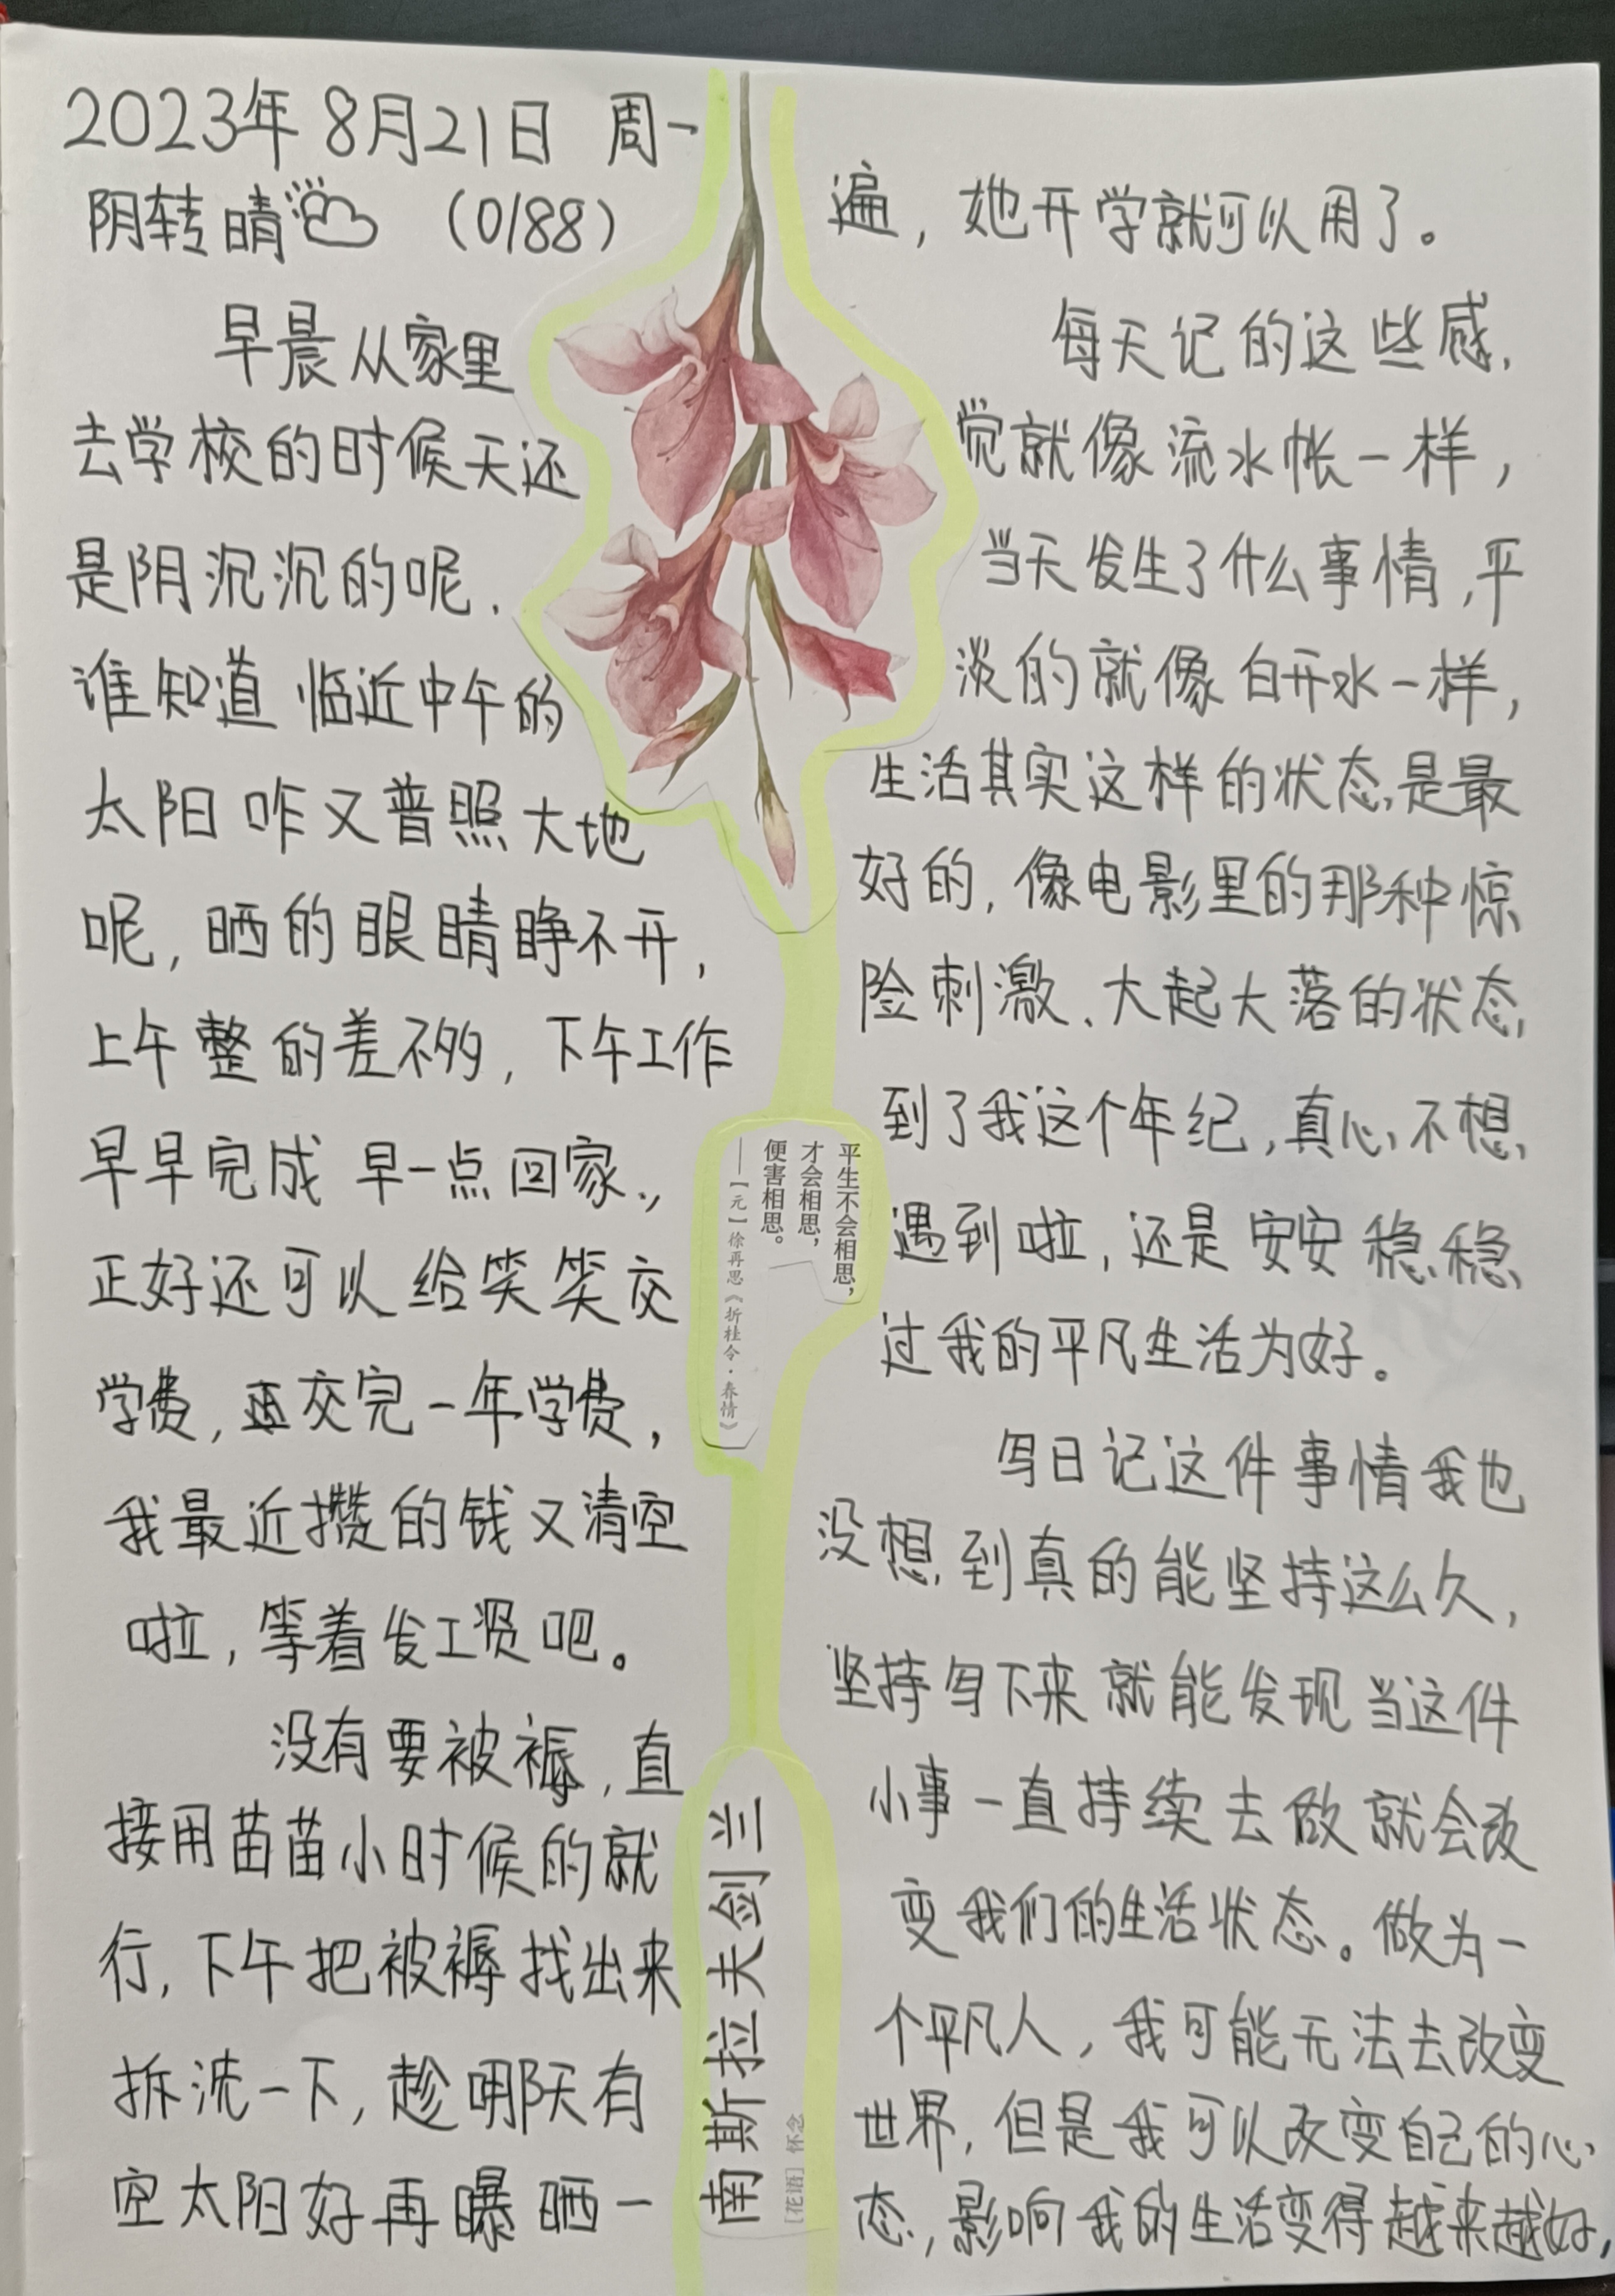 2023年8月21日 周一
阴转晴 (0188)
早晨从家里
去学校的时候天还
是阴沉沉的呢.
谁知道临近中午的
太阳咋又普照大地
呢,晒的眼睛睁不开,
上午整的差不多,下午工作
早早完成 早一点回家.,
正好还可以给笑笑交
学费,交完一年学费,
我最近攒的钱又清空
啦,等着发工资吧。
没有要被褥,直
接用苗苗小时候的就
行,下午把被褥找出来
拆洗一下,趁哪天有
空太阳好再曝晒一
平生不会相思,
才会相思,
便害相思。
——【元】徐再思《折桂令·春情》
南斯拉夫剑兰
[花语] 怀念
遍,她开学就可以用了。
每天记的这些感,
觉就像流水帐一样,
当天发生了什么事情,平
淡的就像白开水一样,
生活其实这样的状态,是最
好的,像电影里的那种惊
险刺激、大起大落的状态,
到了我这个年纪,真心不想,
遇到啦,还是安安稳稳
过我的平凡生活为好。
写日记这件事情我也
没想到真的能坚持这么久,
坚持写下来就能发现当这件
小事一直持续去做就会改
变我们的生活状态。做为一
个平凡人,我可能无法去改变
世界,但是我可以改变自己的心
态,影响我的生活变得越来越好,